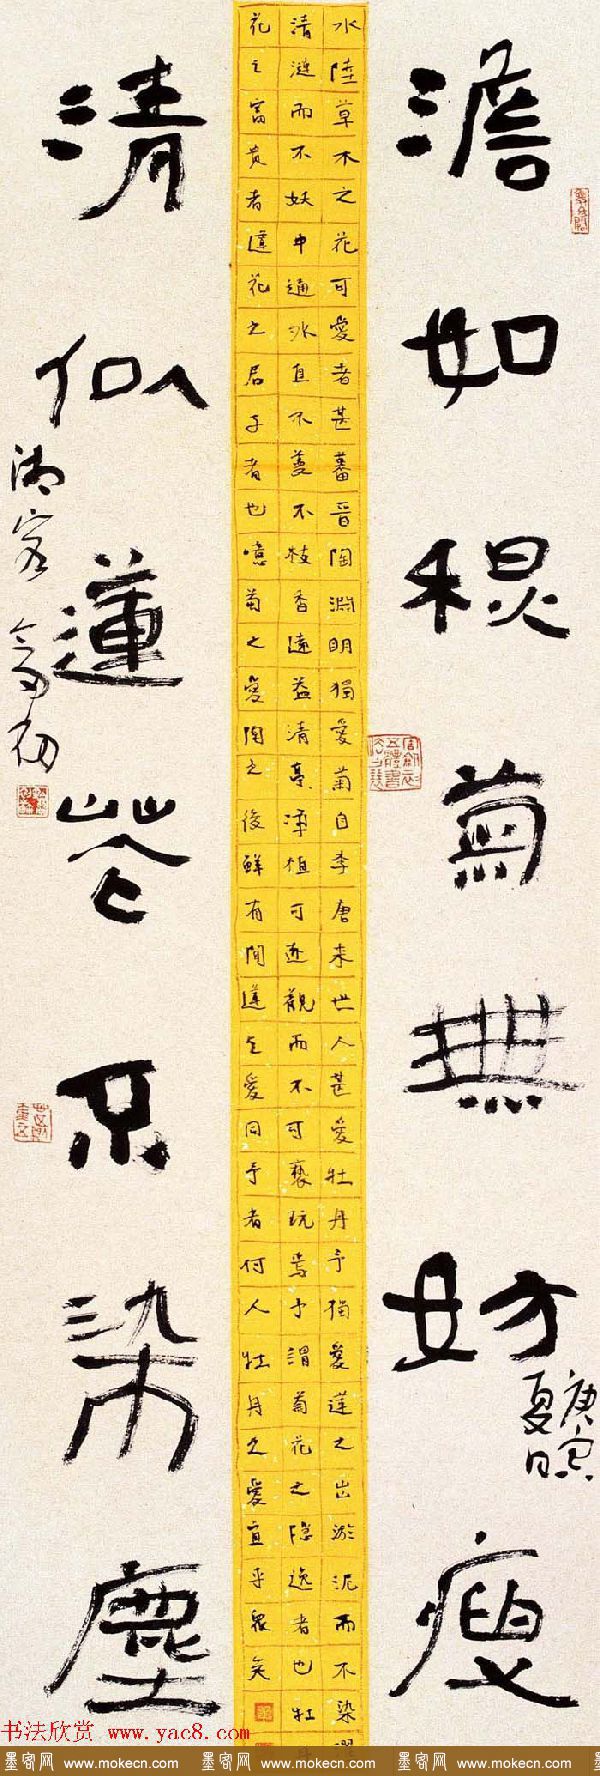 澹如秋菊無妨瘦
庚寅
夏日
水陸草木之花可愛者甚蕃晉陶淵明獨愛菊自李唐來世人甚愛牡丹予獨愛蓮之出淤泥而不染濯
清漣而不妖中通外直不蔓不枝香遠益清亭淨植可遠觀而不可褻玩焉予謂菊花之隱逸者也牡
花之富貴者蓮花之君子者也噫菊之愛陶之後鮮有聞蓮之愛同予者何人牡丹之愛宜乎眾矣
清似蓮花不染塵
书法欣赏 www.yac8.com
墨客网 www.mokecn.com 墨客网 www.mokecn.com 墨客网 www.mokecn.com